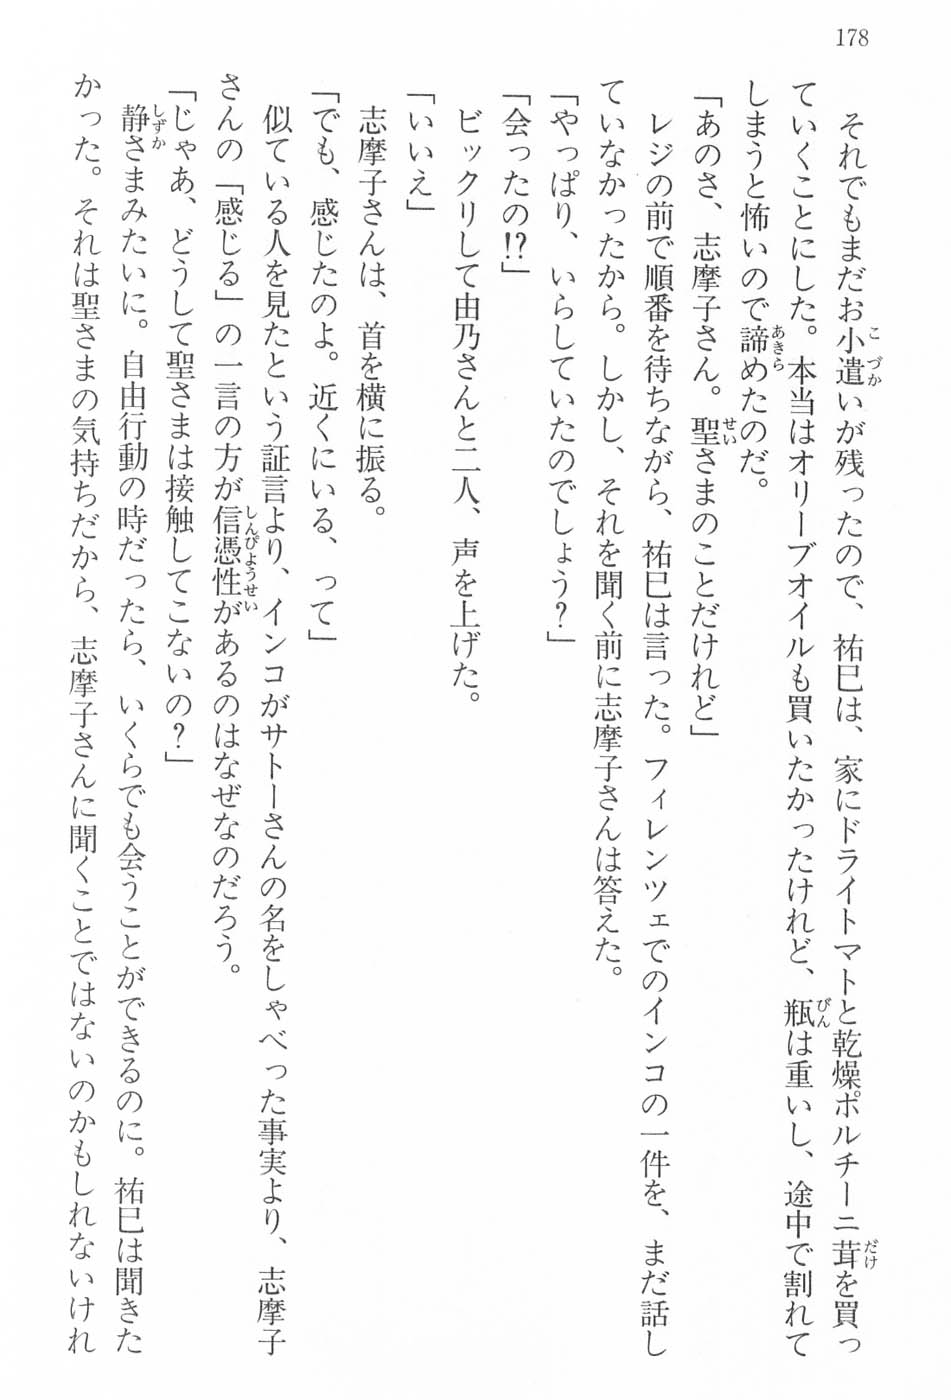 178
それでもまだお小遣いが残ったので、祐巳は、家にドライトマトと乾燥ポルチーニ茸を買っ
ていくことにした。本当はオリーブオイルも買いたかったけれど、瓶は重いし、途中で割れて
しまうと怖いので諦めたのだ。
「あのさ、志摩子さん。聖さまのことだけれど」
レジの前で順番を待ちながら、祐巳は言った。フィレンツェでのインコの一件を、まだ話し
ていなかったから。しかし、それを聞く前に志摩子さんは答えた。
「やっぱり、いらしていたのでしょう?」
「会ったの!?」
ビックリして由乃さんと二人、声を上げた。
「いいえ」
志摩子さんは、首を横に振る。
「でも、感じたのよ。近くにいる、って」
似ている人を見たという証言より、インコがサトーさんの名をしゃべった事実より、志摩子
さんの「感じる」の一言の方が信憑性があるのはなぜなのだろう。
「じゃあ、どうして聖さまは接触してこないの?」
静さまみたいに。自由行動の時だったら、いくらでも会うことができるのに。祐巳は聞きた
かった。それは聖さまの気持ちだから、志摩子さんに聞くことではないのかもしれないけれ